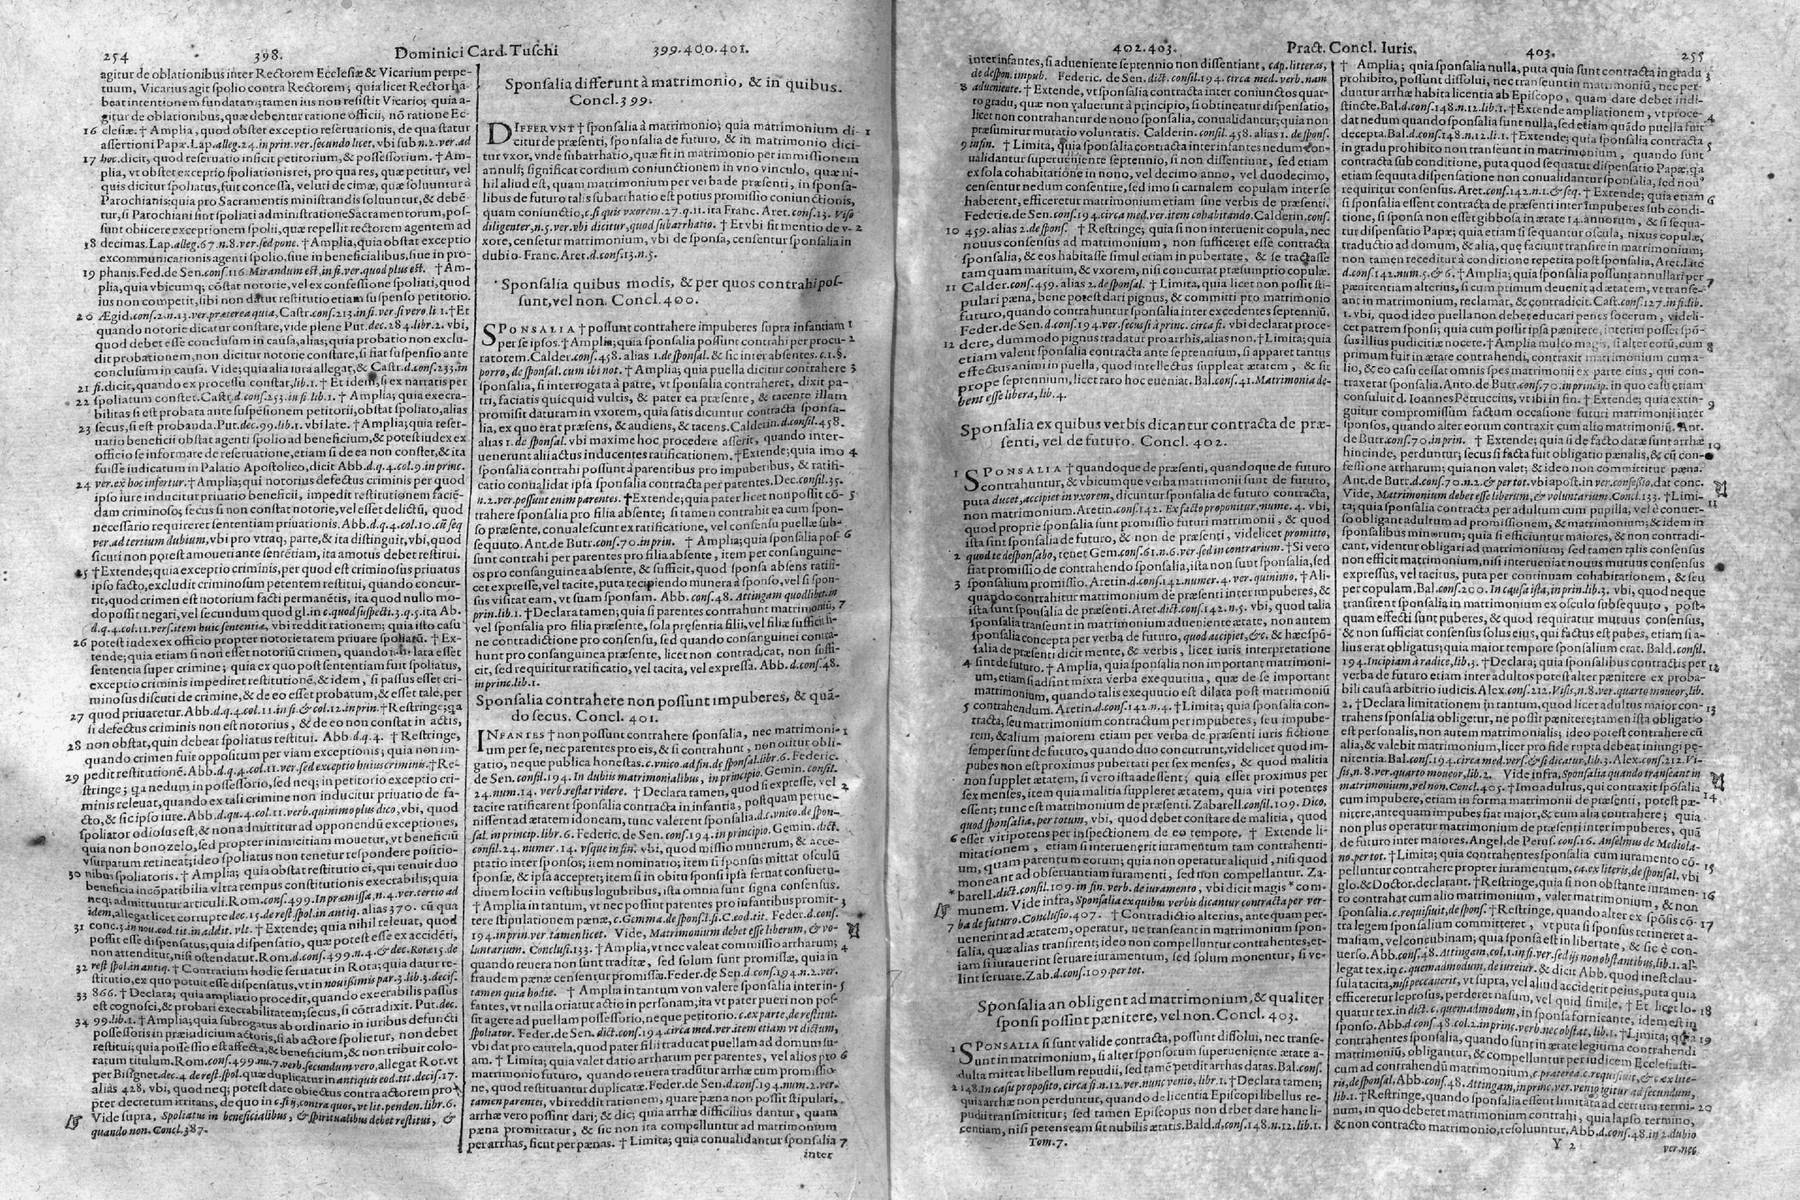 254 398. Dominici Card. Tuschi 399.400.401.
agitur de oblationibus inter Rectorem Ecclesiæ & Vicarium perpe-
tuum, Vicarius agit spolio contra Rectorem; quia licet Rector ha-
beat intentionem fundatam; tamen ius non resistit Vicario; quia a-
gitur de oblationibus, quæ debentur ratione officii, nō ratione Ec-
16 clesiæ. † Amplia, quod obstet exceptio reseruationis, de qua statur
assertioni Papæ. Lap. alleg. 24. in prin. ver. secundo licet, vbi sub n. 2. ver. ad
17 hoc. dicit, quod reseruatio inficit petitorium, & possessorium. † Am-
plia, vt obstet exceptio spoliationis rei, pro qua res, quæ petitur, vel
quis dicitur spoliatus, fuit concessa, veluti decimæ, quæ soluuntur à
Parochianis; quia pro Sacramentis ministrandis soluuntur, & debē-
tur, si Parochiani sint spoliati ad ministratione Sacramentorum, pos-
sunt obiicere exceptionem spolii, quæ repellit rectorem agentem ad
18 decimas. Lap. alleg. 67. n. 8. ver. sed pone. † Amplia, quia obstat exceptio
excommunicationis agenti spolio, siue in beneficialibus, siue in pro-
19 phanis. Fed. de Sen. cons. 116. Mirandum est, in fi. ver. quod plus est. † Am-
plia, quia vbicumq; cōstat notorie, vel ex confessione spoliati, quod
ius non competit, sibi non datur restitutio etiam suspenso petitorio.
20 Ægid. cons. 2. n. 13. ver. præterea quia, Castr. cons. 213. in fi. ver. si vero li. 1. † Et
quando notorie dicatur constare, vide plene Put. dec. 284. libr. 2. vbi,
quod debet esse conclusum in causa, alias; quia probatio non exclu-
dit probationem, non dicitur notorie constare, si fiat suspensio ante
conclusum in causa. Vide; quia alia iura allegat, & Castr. d. cons. 253. in
21 fi. dicit, quando ex processu constat, lib. 1. † Et idem, si ex narratis per
22 spoliatum constet. Castr. d. cons. 253. in fi. lib. 1. † Amplia; quia execra-
bilitas si est probata ante suspensionem petitorii, obstat spoliato, alias
23 secus, si est probanda. Put. dec. 99. lib. 1. vbi late. † Amplia; quia reser-
uatio beneficii obstat agenti spolio ad beneficium, & potest iudex ex
officio se informare de reseruatione, etiam si de ea non constet, & ita
fuisse iudicatum in Palatio Apostolico, dicit Abb. d. q. 4. col. 9. in princ.
24 ver. ex hoc infortur. † Amplia; qui notorius defectus criminis per quod
ipso iure inducitur priuatio beneficii, impedit restitutionem faciē-
dam criminoso; secus si non constat notorie, vel esset delictū, quod
necessario requireret sententiam priuationis. Abb. d. q. 4. col. 10. cū seq
ver. ad tertium dubium, vbi pro vtraq; parte, & ita distinguit, vbi, quod
sicuti non potest amoueri ante sentētiam, ita amotus debet restitui.
25 † Extende; quia exceptio criminis, per quod est criminosus priuatus
ipso facto, excludit criminosum petentem restitui, quando concur-
rit, quod crimen est notorium facti permanētis, ita quod nullo mo-
do possit negari, vel secundum quod gl. in c. quod suspecti. 3. q. 5. ita Ab.
d. q. 4. col. 11. vers. item huic sententiæ, vbi reddit rationem; quia isto casu
26 potest iudex ex officio propter notorietatem priuare spoliatū. † Ex-
tende; quia etiam si non esset notoriū crimen, quando tamen lata esset
sententia super crimine; quia ex quo post sententiam fuit spoliatus,
exceptio criminis impediret restitutionē, & idem, si passus esset cri-
minosus discuti de crimine, & de eo esset probatum, & esset tale, per
27 quod priuaretur. Abb. d. q. 4. col. 11. in fi. & col. 12. in prin. † Restringe; qa
si defectus criminis non est notorius, & de eo non constat in actis,
28 non obstat, quin debeat spoliatus restitui. Abb. d. q. 4. † Restringe,
quando crimen fuit oppositum per viam exceptionis; quia non im-
29 pedit restitutionē. Abb. d. q. 4. col. 11. ver. sed exceptio huius criminis. † Re-
stringe; qa nedum in possessorio, sed neq; in petitorio exceptio cri-
minis releuat, quando ex tali crimine non inducitur priuatio de fa-
cto, & sic ipso iure. Abb. d. qu. 4. col. 11. verb. quinimo plus dico, vbi, quod
spoliator odiosus est, & non admittitur ad opponendū exceptiones,
quia non bono zelo, sed propter inimicitiam mouetur, vt beneficiū
vsurpatum retineat; ideo spoliatus non tenetur respondere positio-
30 nibus spoliatoris. † Amplia; quia obstat restitutio ei, qui tenuit duo
beneficia incōpatibilia vltra tempus constitutionis execrabilis; quia
neq; admittuntur articuli. Rom. cons. 499. In præmissa, n. 4. ver. tertio ad
idem, allegat licet corrupte dec. 15. de rest. spol. in antiq. alias 370. cū qua
31 conc. 3. in nou. eod. tit. in addit. vlt. † Extende; quia nihil releuat, quod
possit esse dispensatus; quia dispensatio, quæ potest esse ex accidēti,
non attenditur, nisi ostendatur. Rom. d. cons. 499. n. 4. & dec. Rotæ 15. de
32 rest. spol. in antiq. † Contrarium hodie seruatur in Rota; quia datur re-
stitutio, ex quo potuit esse dispensatus, vt in nouissimis par. 3. lib. 3. decis.
33 866. † Declara; quia ampliatio procedit, quando execrabilis passus
est cognosci, & probati execrabilitatem; secus, si cōtradixit. Put. dec.
34 99. lib. 1. † Amplia; quia subrogatus ab ordinario in iuribus defuncti
possessoris in præiudicium actoris, si ab actore spolietur, non debet
restitui; quia possessio est affecta, & beneficium, & non tribuit colo-
ratum titulum. Rom. cons. 499. nu. 7. verb. secundum vero, allegat Rot. vt
per Bisignet. dec. 4. de rest. spol. quæ duplicatur in antiquis eod. tit. decis. 17.
alias 428. vbi, quod neq; potest dare obiectus contra actorem pro-
pter decretum irritans, de quo in c. si ij, contra quos, vt lit. penden. libr. 6.
Vide supra, Spoliatus in beneficialibus, & spiritualibus debet restitui, &
quando non. Concl. 387.
Sponsalia differunt à matrimonio, & in quibus.
Concl. 399.
DIFFERVNT † sponsalia à matrimonio; quia matrimonium di- 1
citur de præsenti, sponsalia de futuro, & in matrimonio dici-
tur vxor, vnde subarrhatio, quæ fit in matrimonio per immissionem
annuli; significat cordium coniunctionem in vno vinculo, quæ ni-
hil aliud est, quam matrimonium per verba de præsenti, in sponsa-
libus de futuro talis subarrhatio est potius promissio coniunctionis,
quam coniunctio, c. si quis vxorem. 27. q. 11. ita Franc. Aret. cons. 13. Viso
diligenter, n. 5. ver. vbi dicitur, quod subarrhatio. † Et vbi fit mentio de v- 2
xore, censetur matrimonium, vbi de sponsa, censentur sponsalia in
dubio. Franc. Aret. d. cons. 13. n. 5.
Sponsalia quibus modis, & per quos contrahi pos-
sunt, vel non. Concl. 400.
SPONSALIA † possunt contrahere impuberes supra infantiam 1
per se ipsos. † Amplia; quia possunt sponsalia contrahi per procu- 2
ratorem. Calder. cons. 458. alias 1. de sponsal. & sic inter absentes. c. 1. §.
porro, de sponsal. cum ibi not. † Amplia; quia puella dicitur contrahere 3
sponsalia, si interrogata à patre, vt sponsalia contraheret, dixit pa-
tri, faciatis quicquid vultis, & pater ea præsente, & tacente illam
promisit daturam in vxorem, quia satis dicuntur contracta sponsa-
lia, ex quo erat præsens, & audiens, & tacens. Calderin. d. consil. 458.
alias 1. de sponsal. vbi maxime hoc procedere asserit, quando inter-
uenerunt alii actus inducentes ratificationem. † Extende; quia imo 4
sponsalia contrahi possunt à parentibus pro impuberibus, & ratifi-
catio conualidat ipsa sponsalia contracta per parentes. Dec. cons. 35.
n. 2. ver. possunt enim parentes. † Extende; quia pater licet non possit cō- 5
trahere sponsalia pro filia absente; si tamen contrahit ea cum spon-
so præsente, conualescunt ex ratificatione, vel consensu puellæ sub-
sequuto. Ant. de Butr. cons. 70. in prin. † Amplia; quia sponsalia pos- 6
sunt contrahi per parentes pro filia absente, item per consanguine-
os pro consanguinea absente, & sufficit, quod sponsa absens ratifi-
cet expresse, vel tacite, puta recipiendo munera à sponso, vel si spon-
sus visitat eam, vt suam sponsam. Abb. cons. 48. Attingam quodlibet in
prin. lib. 1. † Declara tamen; quia si parentes contrahunt matrimoniū, 7
vel sponsalia pro filia præsente, sola præsentia filii, vel filiæ sufficit si-
ne contradictione pro consensu, sed quando consanguinei contra-
hunt pro consanguinea præsente, licet non contradicat, non suffi-
cit, sed requiritur ratificatio, vel tacita, vel expressa. Abb. d. cons. 48.
in prin. lib. 1.
Sponsalia contrahere non possunt impuberes, & quā-
do secus. Concl. 401.
INFANTES † non possunt contrahere sponsalia, nec matrimoni- 1
um per se, nec parentes pro eis, & si contrahunt, non oritur obli-
gatio, neque publica honestas. c. vnico. ad fin. de sponsal. libr. 6. Federic.
de Sen. consil. 194. In dubiis matrimonialibus, in principio. Gemin. consil.
24. num. 14. verb. restat videre. † Declara tamen, quod si expresse, vel 2
tacite ratificarent sponsalia contracta in infantia, postquam perue-
nissent ad ætatem idoneam, tunc valerent sponsalia. d. c. vnico. de spon-
sal. in princip. libr. 6. Federic. de Sen. cons. 194. in principio. Gemin. dict.
consil. 24. numer. 14. vsque in fin. vbi, quod missio munerum, & acce-
ptatio inter sponsos; item nominatio; item si sponsus mittat osculū
sponsæ, & ipsa acceptet; item si in obitu sponsi ipsa seruat consuetu-
dinem loci in vestibus lugubribus, ista omnia sunt signa consensus.
† Amplia in tantum, vt nec possint parentes pro infantibus promit- 3
tere stipulationem pœnæ, c. Gemma. de sponsal. & si. C. eod. tit. Feder. d. cons.
194. in prin. ver. tamen licet. Vide, Matrimonium debet esse liberum, & vo-
luntarium. Conclus. 133. † Amplia, vt nec valeat commissio arrharum; 4
quando reuera non sunt traditæ, sed solum sunt promissæ, quia in
fraudem pœnæ censentur promissæ. Feder. de Sen. d. cons. 194. n. 2. ver.
tamen quia hodie. † Amplia in tantum non valere sponsalia inter in- 5
fantes, vt nulla oriatur actio in personam, ita vt pater pueri non pos-
sit agere ad puellam possessorio, neque petitorio. c. ex parte, de restitut.
spoliator. Feder. de Sen. dict. cons. 194. circa med. ver. item etiam vt dictum,
vbi dat pro cautela, quod pater filii traducat puellam ad domum su-
am. † Limita; quia valet datio arrharum per parentes, vel alios pro 6
matrimonio futuro, quando reuera traduntur arrhæ cum promissio-
ne, quod restituantur duplicatæ. Feder. de Sen. d. cons. 194. num. 2. ver.
tamen parentes, vbi reddit rationem, quare pœna non possit stipulari,
arrhæ vero possint dari; & dic; quia arrhæ difficilius dantur, quam
pœna promittatur, & sic non ita compelluntur ad matrimonium
per arrhas, sicut per pœnas. † Limita; quia conualidantur sponsalia 7
inter
402.403. Pract. Concl. Iuris. 403. 255
inter infantes, si adueniente septennio non dissentiant, cap. litteras,
de despon. impub. Federic. de Sen. dict. consil. 194. circa med. verb. nam
8 adueniente. † Extende, vt sponsalia contracta inter coniunctos quar-
to gradu, quæ non valuerunt à principio, si obtineatur dispensatio,
licet non contrahantur de nouo sponsalia, conualidantur; quia non
præsumitur mutatio voluntatis. Calderin. consil. 458. alias 1. de spons.
9 in fin. † Limita, quia sponsalia contracta inter infantes nedum con-
ualidantur superueniente septennio, si non dissentiant, sed etiam
ex sola cohabitatione in nono, vel decimo anno, vel duodecimo,
censentur nedum consentire, sed imo si carnalem copulam inter se
haberent, efficeretur matrimonium etiam sine verbis de præsenti.
Federic. de Sen. cons. 194. circa med. ver. item cohabitando. Calderin. cons.
10 459. alias 2. de spons. † Restringe; quia si non interuenit copula, nec
nouus consensus ad matrimonium, non sufficeret esse contracta
sponsalia, & eos habitasse simul etiam in pubertate, & se tractasse
tam quam maritum, & vxorem, nisi concurrat præsumptio copulæ.
11 Calder. cons. 459. alias 2. de sponsal. † Limita, quia licet non possit sti-
pulari pœna, bene potest dari pignus, & committi pro matrimonio
futuro, quando contrahuntur sponsalia inter excedentes septenniū.
Feder. de Sen. d. cons. 194. ver. secus si à princ. circa fi. vbi declarat proce-
12 dere, dummodo pignus tradatur pro arrhis, alias non. † Limita; quia
etiam valent sponsalia contracta ante septennium, si apparet tantus
effectus animi in puella, quod intellectus suppleat ætatem, & sit
prope septennium, licet raro hoc eueniat. Bal. cons. 41. Matrimonia de-
bent esse libera, lib. 4.
Sponsalia ex quibus verbis dicantur contracta de præ-
senti, vel de futuro. Concl. 402.
1 SPONSALIA † quandoque de præsenti, quandoque de futuro
contrahuntur, & vbicumque verba matrimonii sunt de futuro,
puta ducet, accipiet in vxorem, dicuntur sponsalia de futuro contracta,
non matrimonium. Aretin. cons. 142. Ex facto proponitur, nume. 4. vbi,
quod proprie sponsalia sunt promissio futuri matrimonii, & quod
ista sunt sponsalia de futuro, & non de præsenti, videlicet promitto,
2 quod te desponsabo, tenet Gem. cons. 61. n. 6. ver. sed in contrarium. † Si vero
fiat promissio de contrahendo sponsalia, ista non sunt sponsalia, sed
3 sponsalium promissio. Aretin. d. cons. 142. numer. 4. ver. quinimo. † Ali-
quando contrahitur matrimonium de præsenti inter impuberes, &
ista sunt sponsalia de præsenti. Aret. dict. cons. 142. n. 5. vbi, quod talia
sponsalia transeunt in matrimonium adueniente ætate, non autem
sponsalia concepta per verba de futuro, quod accipiet, &c. & hæc spō-
salia de præsenti dicit mente, & verbis, licet iuris interpretatione
4 sint de futuro. † Amplia, quia sponsalia non important matrimoni-
um, etiam si adsint mixta verba exequutiua, quæ de se important
matrimonium, quando talis exequutio est dilata post matrimoniū
5 contrahendum. Aretin. d. cons. 142. n. 4. † Limita; quia sponsalia con-
tracta, seu matrimonium contractum per impuberes, seu impube-
rem, & alium maiorem etiam per verba de præsenti iuris fictione
semper sunt de futuro, quando duo concurrunt, videlicet quod im-
pubes non est proximus pubertati per sex menses, & quod malitia
non supplet ætatem, si vero ista adessent; quia esset proximus per
sex menses, item quia malitia suppleret ætatem, quia viri potens
esset; tunc est matrimonium de præsenti. Zabarell. consil. 109. Dico,
quod sponsalia, per totum, vbi, quod debet constare de malitia, quod
6 esset viripotens per inspectionem de eo tempore. † Extende li-
mitationem, etiam si interuenerit iuramentum tam contrahenti-
um, quam parentum eorum; quia non operatur aliquid, nisi quod
moneant ad obseruantiam iuramenti, sed non compellantur. Za-
barell. dict. consil. 109. in fin. verb. de iuramento, vbi dicit magis * com-
munem. Vide infra, Sponsalia ex quibus verbis dicantur contracta per ver-
7 ba de futuro. Conclusio. 407. † Contradictio alterius, antequam per-
uenerint ad ætatem, operatur, ne transeant in matrimonium spon-
salia, quæ alias transirent; ideo non compelluntur contrahentes, et-
iam si iurauerint seruare iuramentum, sed solum monentur, si ve-
lint seruare. Zab. d. cons. 109. per tot.
Sponsalia an obligent ad matrimonium, & qualiter
sponsi possint pœnitere, vel non. Concl. 403.
1 SPONSALIA si sunt valide contracta, possunt dissolui, nec transe-
unt in matrimonium, si alter sponsorum superueniente ætate a-
dulta mittat libellum repudii, sed tamen debet perdit arrhas datas. Bal. cons.
2 148. In casu proposito, circa fi. n. 12. ver. nunc venio, libr. 1. † Declara tamen;
quia arrhæ non perduntur, quando de licentia Episcopi libellus re-
pudii transmittitur; sed tamen Episcopus non debet dare hanc li-
centiam, nisi petens eam sit nubilis ætatis. Bald. d. cons. 148. n. 12. lib. 1.
Tom. 7.
† Amplia; quia sponsalia nulla, puta quia sunt contracta in gradu 3
prohibito, possunt dissolui, nec transeunt in matrimoniū, nec per-
duntur arrhæ habita licentia ab Episcopo, quam dare debet indi-
stincte. Bal. d. cons. 148. n. 12. lib. 1. † Extende ampliationem, vt proce- 4
dat nedum quando sponsalia sunt nulla, sed etiam quādo puella fuit
decepta. Bal. d. cons. 148. n. 12. li. 1. † Extende; quia sponsalia contracta 5
in gradu prohibito non transeunt in matrimonium, quando sunt
contracta sub conditione, puta quod sequatur dispensatio Papæ; qa
etiam sequuta dispensatione non conualidantur sponsalia, sed nouus
requiritur consensus. Aret. cons. 142. n. 1. & seq. † Extende; quia etiam 6
si sponsalia essent contracta de præsenti inter impuberes sub condi-
tione, si sponsa non esset gibbosa in ætate 14. annorum, & si sequa-
tur dispensatio Papæ; quia etiam si sequantur oscula, nixus copulæ,
traductio ad domum, & alia, que faciunt transire in matrimonium,
non tamen receditur à conditione repetita post sponsalia, Aret. late
d. cons. 142. num. 5. & 6. † Amplia; quia sponsalia possunt annullari per 7
pœnitentiam alterius, si cum primum deuenit ad ætatem, vt transe-
ant in matrimonium, reclamat, & contradicit. Cast. cons. 127. in fi. lib.
1. vbi, quod ideo puella non debet educari penes socerum, videli-
cet patrem sponsi; quia cum possit ipsa pœnitere, interim posset spō-
sus illius pudicitiæ nocere. † Amplia multo magis, si alter eorū, cum 8
primum fuit in ætate contrahendi, contraxit matrimonium cum a-
lio, & eo casu cessat omnis spes matrimonii ex parte eius, qui con-
traxerat sponsalia. Anto. de Butr. cons. 70. in princip. in quo casu etiam
consuluit d. Ioannes Petruccius, vt ibi in fin. † Extende; quia extin- 9
guitur compromissum factum occasione futuri matrimonii inter
sponsos, quando alter eorum contraxit cum alio matrimoniū. Ant.
de Butr. cons. 70. in prin. † Extende; quia si de facto datæ sunt arrhæ 10
hinc inde, perduntur; secus si facta fuit obligatio pœnalis, & cū con-
fessione arrharum; quia non valet; & ideo non committitur pœna.
Ant. de Butr. d. cons. 70. n. 2. & per tot. vbi apost. in ver. confessio, dat conc.
Vide, Matrimonium debet esse liberum, & voluntarium. Concl. 133. † Limi- 11
ta; quia sponsalia contracta per adultum cum pupilla, vel è conuer-
so obligant adultum ad promissionem, & matrimonium; & idem in
sponsalibus minorum; quia si efficiuntur maiores, & non contradi-
cant, videntur obligari ad matrimonium; sed tamen talis consensus
non efficit matrimonium, nisi interueniat nouus mutuus consensus
expressus, vel tacitus, puta per continuam cohabitationem, & seu
per copulam. Bal. cons. 200. In causa ista, in prin. lib. 3. vbi, quod neque
transirent sponsalia in matrimonium ex osculo subsequuto, post-
quam effecti sunt puberes, & quod requiratur mutuus consensus,
& non sufficiat consensus solus eius, qui factus est pubes, etiam si a-
lius erat obligatus; quia maior tempore sponsalium erat. Bald. consil.
194. Incipiam à radice, lib. 3. † Declara; quia sponsalibus contractis per 12
verba de futuro etiam inter adultos potest alter pœnitere, ex proba-
bili causa arbitrio iudicis. Alex. cons. 212. Visis, n. 8. ver. quarto moueor, lib.
2. † Declara limitationem in tantum, quod licet adultus maior con- 13
trahens sponsalia obligetur, ne possit pœnitere; tamen ista obligatio
est personalis, non matrimonialis; ideo potest contrahere cū
alia, & valebit matrimonium, licet pro fide rupta debeat iniungi pœ-
nitentia. Bal. cons. 194. circa med. vers. & si dicatur, lib. 3. Alex. cons. 212. Vi-
sis, n. 8. ver. quarto moueor, lib. 2. Vide infra, Sponsalia quando transeant in
matrimonium, vel non. Concl. 405. † Imo adultus, qui contraxit sponsalia 14
cum impubere, etiam in forma matrimonii de præsenti, potest pœ-
nitere, antequam impubes fiat maior, & cum alia contrahere; quia
non plus operatur matrimonium de præsenti inter impuberes, quā
de futuro inter maiores. Angel. de Perus. cons. 16. Anselmus de Mediola-
no. per tot. † Limita; quia contrahentes sponsalia cum iuramento cō- 15
pelluntur contrahere propter iuramentum, ca. ex literis, de sponsal. vbi
glo. & Doctor. declarant. † Restringe, quia si non obstante iuramen- 16
to contrahat cum alio matrimonium, valet matrimonium, & non
sponsalia. c. requisiuit, de spons. † Restringe, quando alter ex spōsis cō- 17
tra legem sponsalium committeret, vt puta si sponsus retineret a-
masiam, vel concubinam; quia sponsa est in libertate, & sic è con-
uerso. Abb. cons. 48. Attingam, col. 1. in fi. ver. sed iis non obstantibus, lib. 1. al-
legat tex. in c. quemadmodum, de iureiur. & dicit Abb. quod inest clau-
sula tacita, nisi peccauerit, vt supra, vel aliud acciderit peius, puta quia
efficeretur leprosus, perderet nasum, vel quid simile. † Et licet lo- 18
quatur tex. in dict. c. quemadmodum, in sponsa fornicante, idem est in
sponso. Abb. d. cons. 48. col. 2. in prin. verb. nec obstat, lib. 1. † Limita; quia 19
contrahentes sponsalia, quando sunt in ætate legitima contrahendi
matrimonii, obligantur, & compelluntur per iudicem Ecclesiasti-
cum ad contrahendū matrimonium, c. præterea. c. requisiuit, & c. ex lite-
ris, de sponsal. Abb. cons. 48. Attingam, in princ. ver. venio igitur ad secundum,
lib. 1. † Restringe, quando sponsalia essent limitata ad certum termi- 20
num, in quo deberet matrimonium contrahi, quia lapso termino,
& non contracto matrimonio, resoluuntur, Abb. d. cons. 48. in 2. dubio
Y 2 ver. nec